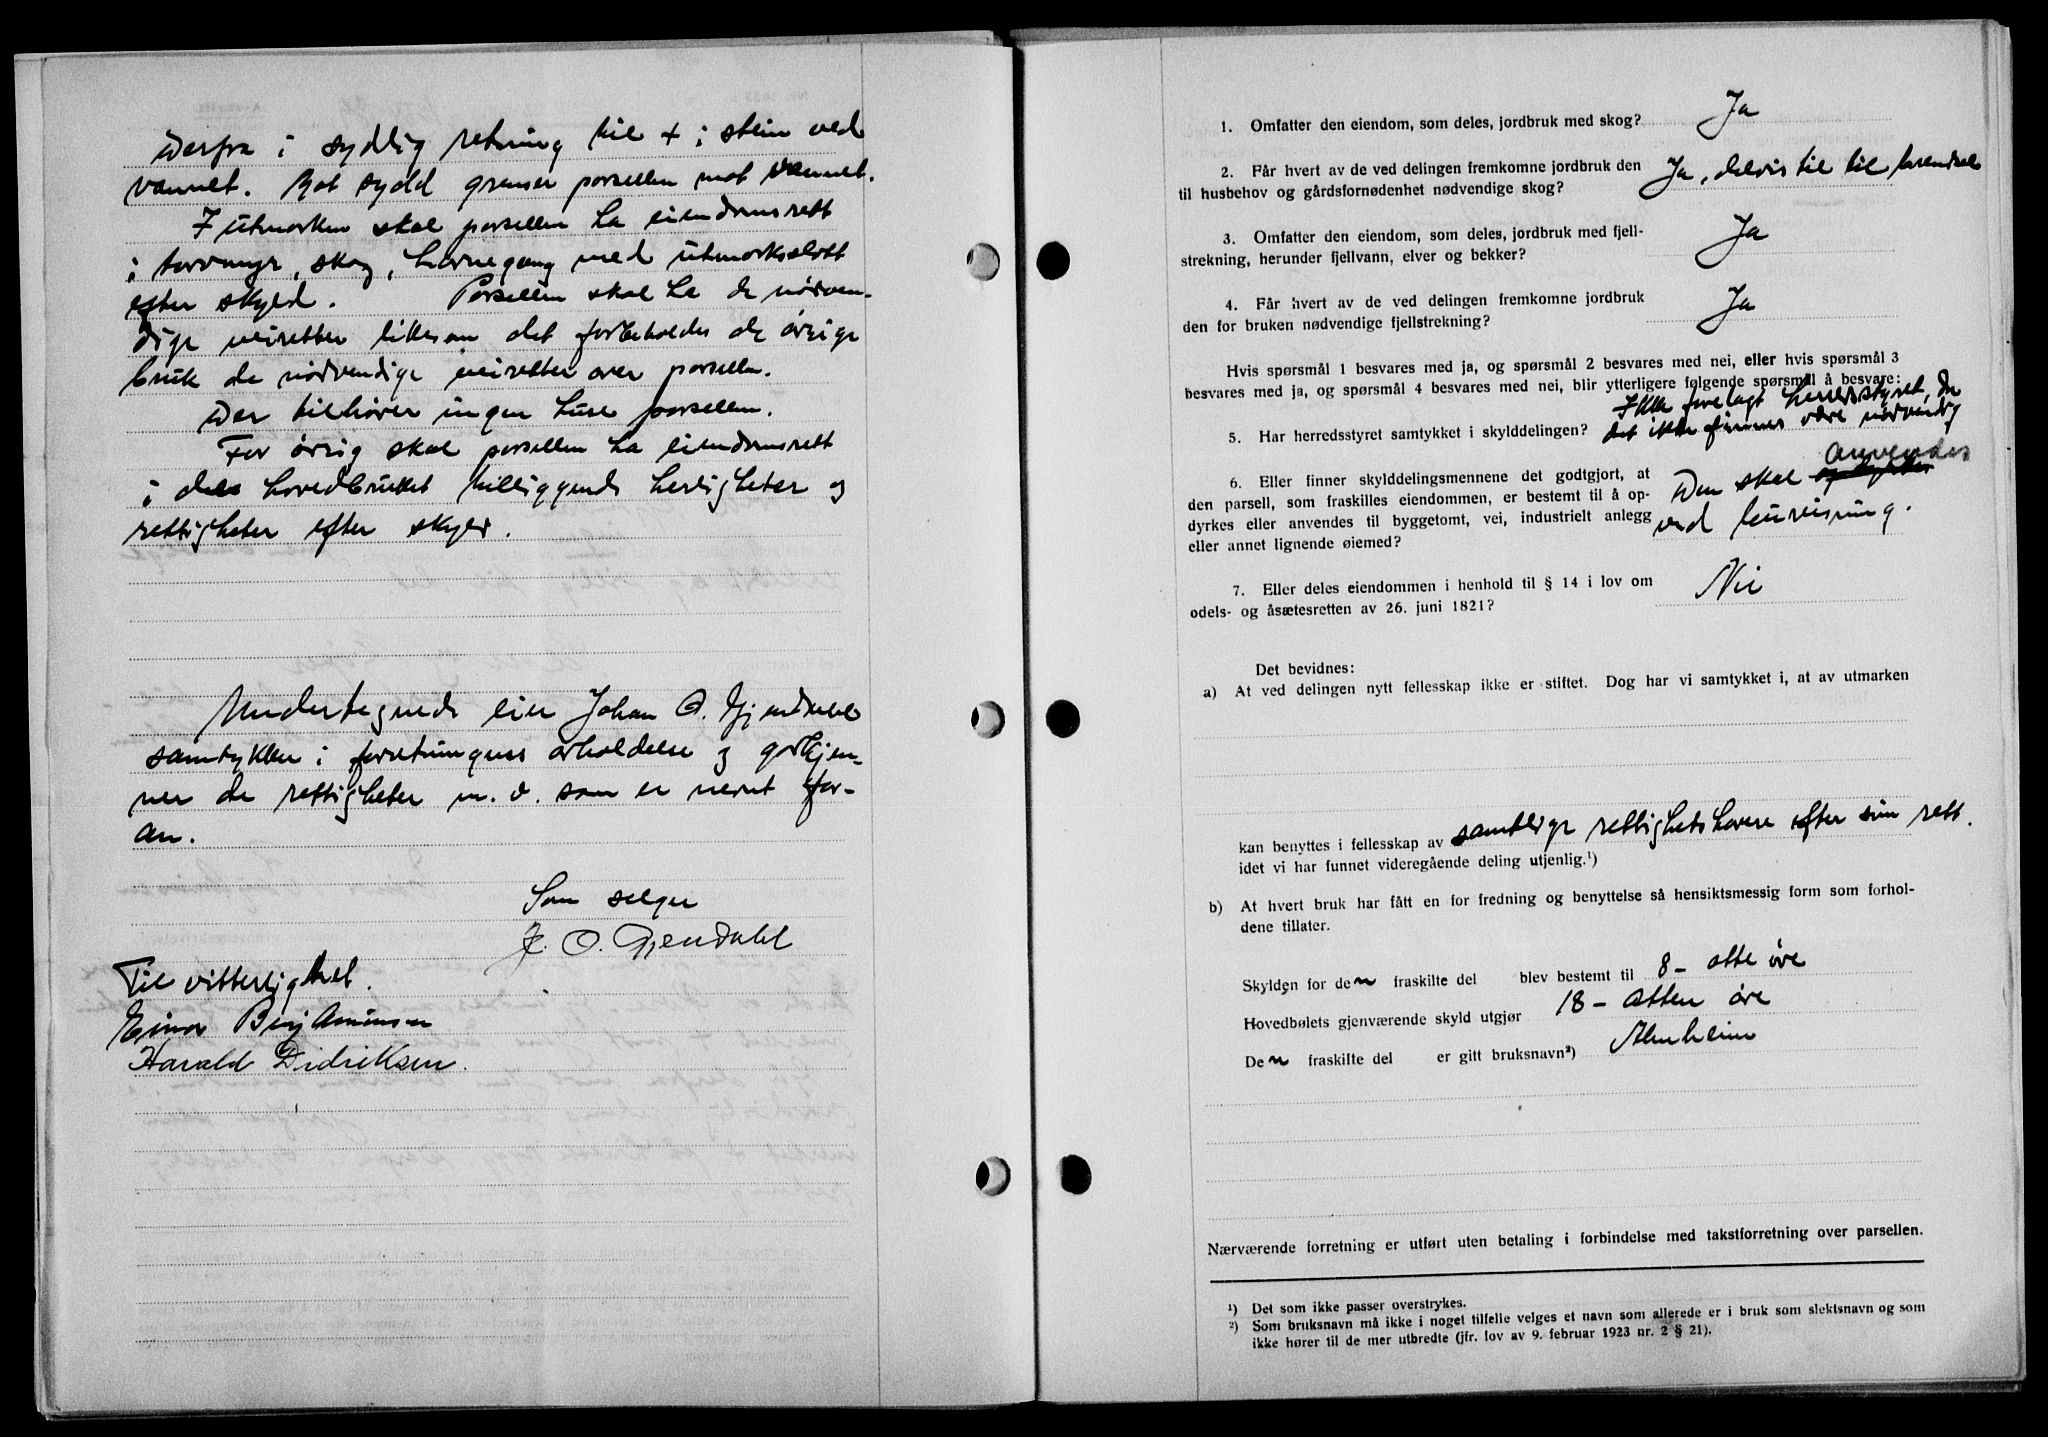 Derfra i sydlig retning til + i stein ved
vannet. Mot sydd grenser parsellen mot vannet.
I utmarken skal parsellen ha eiendomsrett
i torvmyr, skog, havnegang med utmarksslått
efter skyld. Parsellen skal ha de nødven-
dige veiretter likesom det forbeholdes de øvrige
bruk de nødvendige veiretter over parsellen.
Der tilhører ingen huse parsellen.
For øvrig skal parsellen ha eiendomsrett
i dele hovedbruket tilliggende herligheter og
rettigheter efter skyld.
Undertegnede eier Johan O. Gjendahl
samtykker i forretningens avholdelse og godkjen-
ner de rettigheter m. v. som er nevnt for-
an.
Som selger
J. O. Gjendahl
Til vitterlighet.
Einar Benjaminsen
Harald Didriksen.
1. Omfatter den eiendom, som deles, jordbruk med skog? Ja
2. Får hvert av de ved delingen fremkomne jordbruk den
til husbehov og gårdsfornødenhet nødvendige skog? Ja, delvis til til brendsel
3. Omfatter den eiendom, som deles, jordbruk med fjell-
strekning, herunder fjellvann, elver og bekker? Ja
4. Får hvert av de ved delingen fremkomne jordbruk
den for bruken nødvendige fjellstrekning? Ja
Hvis spørsmål 1 besvares med ja, og spørsmål 2 besvares med nei, eller hvis spørsmål 3
besvares med ja, og spørsmål 4 besvares med nei, blir ytterligere følgende spørsmål å besvare:
Ikke forelagt herredsstyret, da
5. Har herredsstyret samtykket i skylddelingen? det ikke finnes være nødvendig
6. Eller finner skylddelingsmennene det godtgjort, at
den parsell, som fraskilles eiendommen, er bestemt til å op-
dyrkes eller anvendes til byggetomt, vei, industrielt anlegg
eller annet lignende øiemed? Den skal anvendes
ved bureisning.
7. Eller deles eiendommen i henhold til § 14 i lov om
odels- og åsætesretten av 26. juni 1821? Nei
Det bevidnes:
a) At ved delingen nytt fellesskap ikke er stiftet. Dog har vi samtykket i, at av utmarken
kan benyttes i fellesskap av samtlige rettighetshavere efter sin rett.
idet vi har funnet videregående deling utjenlig.¹)
b) At hvert bruk har fått en for fredning og benyttelse så hensiktsmessig form som forhol-
dene tillater.
Skylden for den fraskilte del blev bestemt til 8 - otte øre
Hovedbølets gjenværende skyld utgjør 18 - atten øre
Den fraskilte del er gitt bruksnavn²) Almheim
Nærværende forretning er utført uten betaling i forbindelse med takstforretning over parsellen.
¹) Det som ikke passer overstrykes.
²) Som bruksnavn må ikke i noget tilfelle velges et navn som allerede er i bruk som slektsnavn og som
ikke hører til de mer utbredte (jfr. lov av 9. februar 1923 nr. 2 § 21).